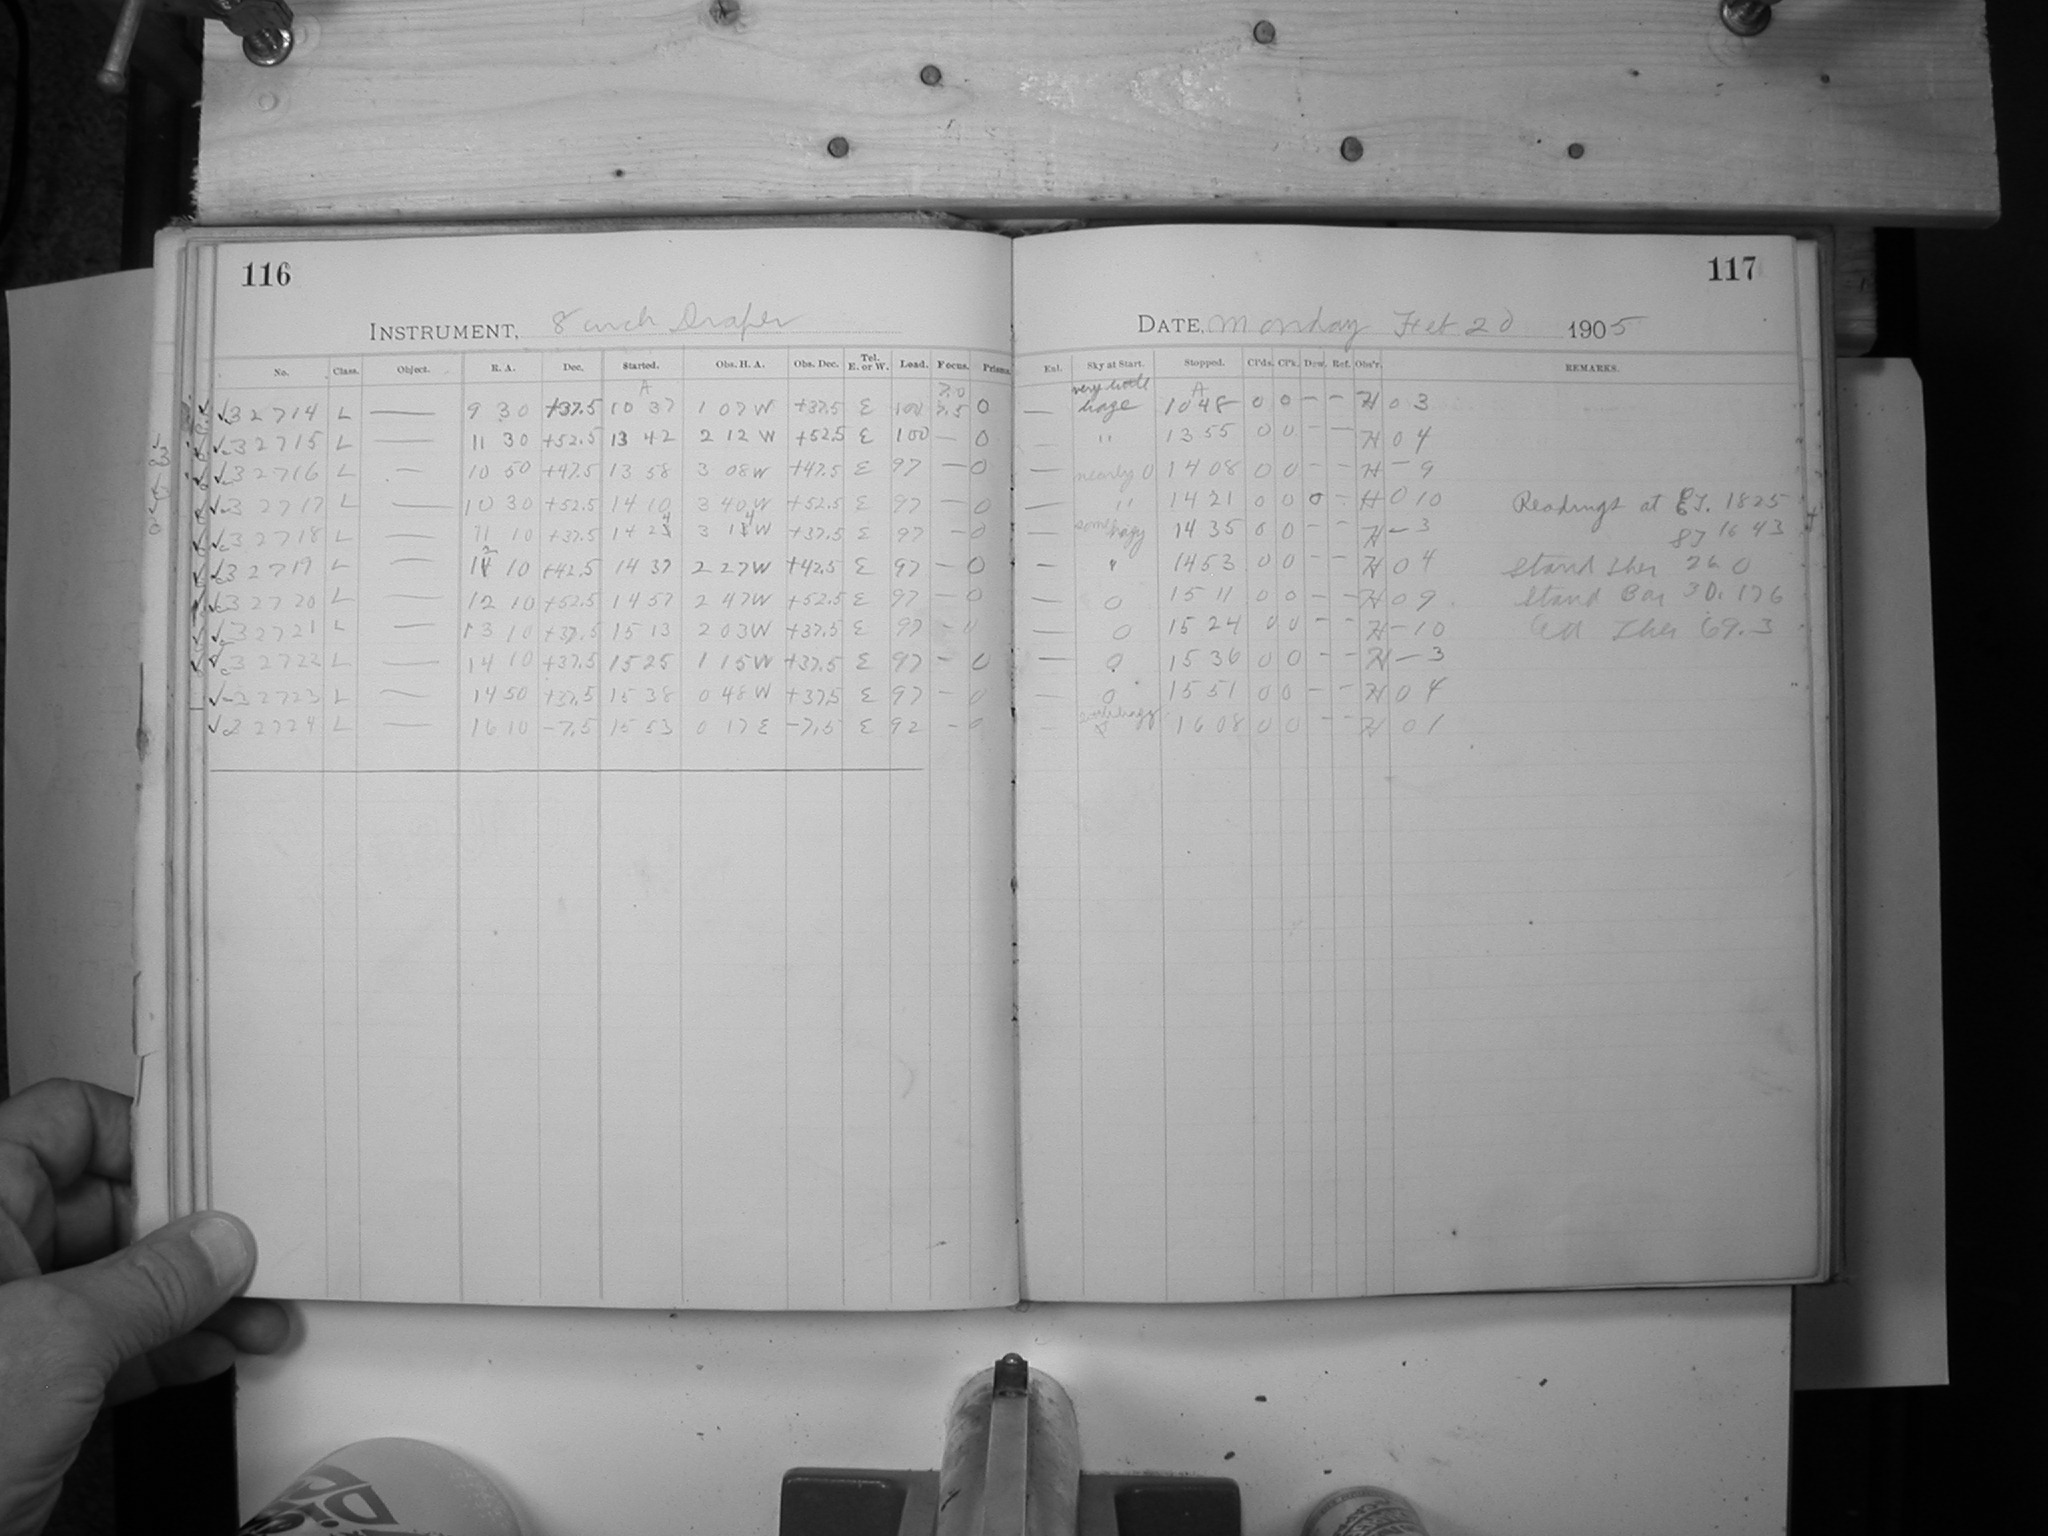 116
117
INSTRUMENT, 8 inch Draper
DATE, Monday Feb 20 1905
No. Class. Object. R. A. Dec. Started. Obs. H. A. Obs. Dec. Tel. E. or W. Load. Focus. Prisms.
Exl. Sky at Start. Stopped. Cl'ds. Cl'k. Dew. Ref. Obs'r. REMARKS.
32714 L — 9 30 +37.5 A 10 37 1 07 W +37.5 E 100 7.5 0 — very little haze A 10 48 0 0 – – H 0 3
32715 L — 11 30 +52.5 13 42 2 12 W +52.5 E 100 – 0 — " 13 55 0 0 – – H 0 4
32716 L — 10 50 +47.5 13 58 3 08 W +47.5 E 97 – 0 — nearly 0 14 08 0 0 – – H – 9
32717 L — 10 30 +52.5 14 10 3 40 W +52.5 E 97 – 0 — " 14 21 0 0 0 – H 0 10 Readings at 1825
32718 L — 11 10 +37.5 14 24 3 14 W +37.5 E 97 – 0 — some hazy 14 35 0 0 – – H – 3 87 16 43
32719 L — 12 10 +42.5 14 37 2 27 W +42.5 E 97 – 0 – " 14 53 0 0 – – H 0 4 Stand Ther 26 0
32720 L — 12 10 +52.5 14 57 2 47 W +52.5 E 97 – 0 — 0 15 11 0 0 – – H 0 9 Stand Bar 30.176
32721 L — 13 10 +37.5 15 13 2 03 W +37.5 E 97 – 0 — 0 15 24 0 0 – – H – 10 Att Ther 69.3
32722 L — 14 10 +37.5 15 25 1 15 W +37.5 E 97 – 0 — 0 15 36 0 0 – – H – 3
32723 L — 14 50 +37.5 15 38 0 48 W +37.5 E 97 – 0 — 0 15 51 0 0 – – H 0 4
32724 L — 16 10 –7.5 15 53 0 17 E –7.5 E 92 – 0 — hazy 16 08 0 0 – – H 0 1